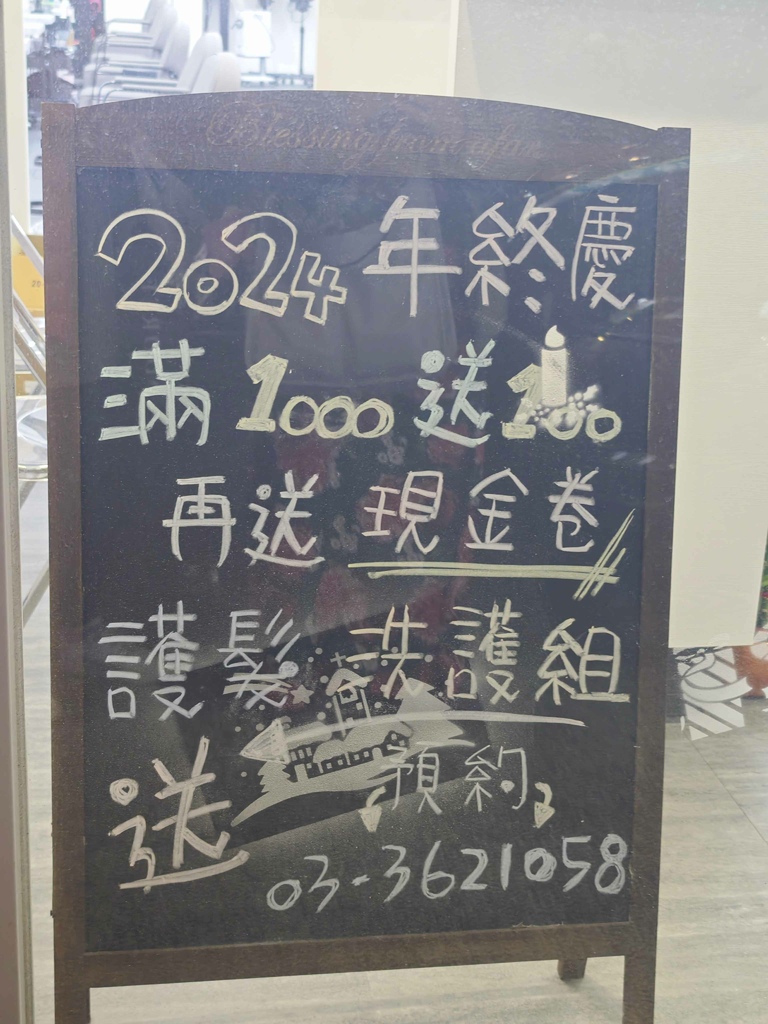 Blessing from afar
2024年終慶
滿1000送100
再送現金卷
護髮 洗護組
送
預約
03-3621058